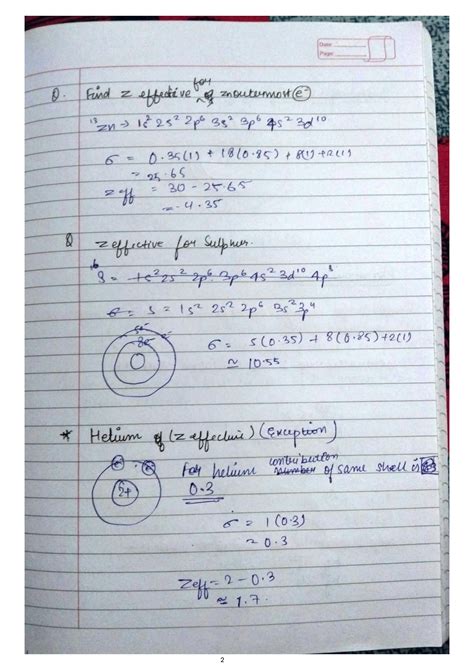 Date
Page
for
Q. Find Z effective of Zn outermost e⁻
Zn → 1s² 2s² 2p⁶ 3s² 3p⁶ 4s² 3d¹⁰
σ = 0.35(1) + 18(0.85) + 8(1) + 2(1)
= 25.65
Zeff = 30 - 25.65
= 4.35
Q Z effective for Sulphur.
16
S = 1s² 2s² 2p⁶ 3p⁶ 4s² 3d¹⁰ 4p³
S = 1s² 2s² 2p⁶ 3s² 3p⁴
σ = 5(0.35) + 8(0.85) + 2(1)
≈ 10.55
* Helium of (Z effective) (Exception)
contribution
For helium number of same shell is
0.3
2+
σ = 1(0.3)
≈ 0.3
Zeff = 2 - 0.3
≈ 1.7
2